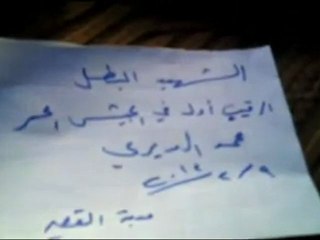 الشهيد البطل
الرقيب أول في الجيش الحر
محمد الديري
٢٠١٢/٢/٩
مدينة القصير